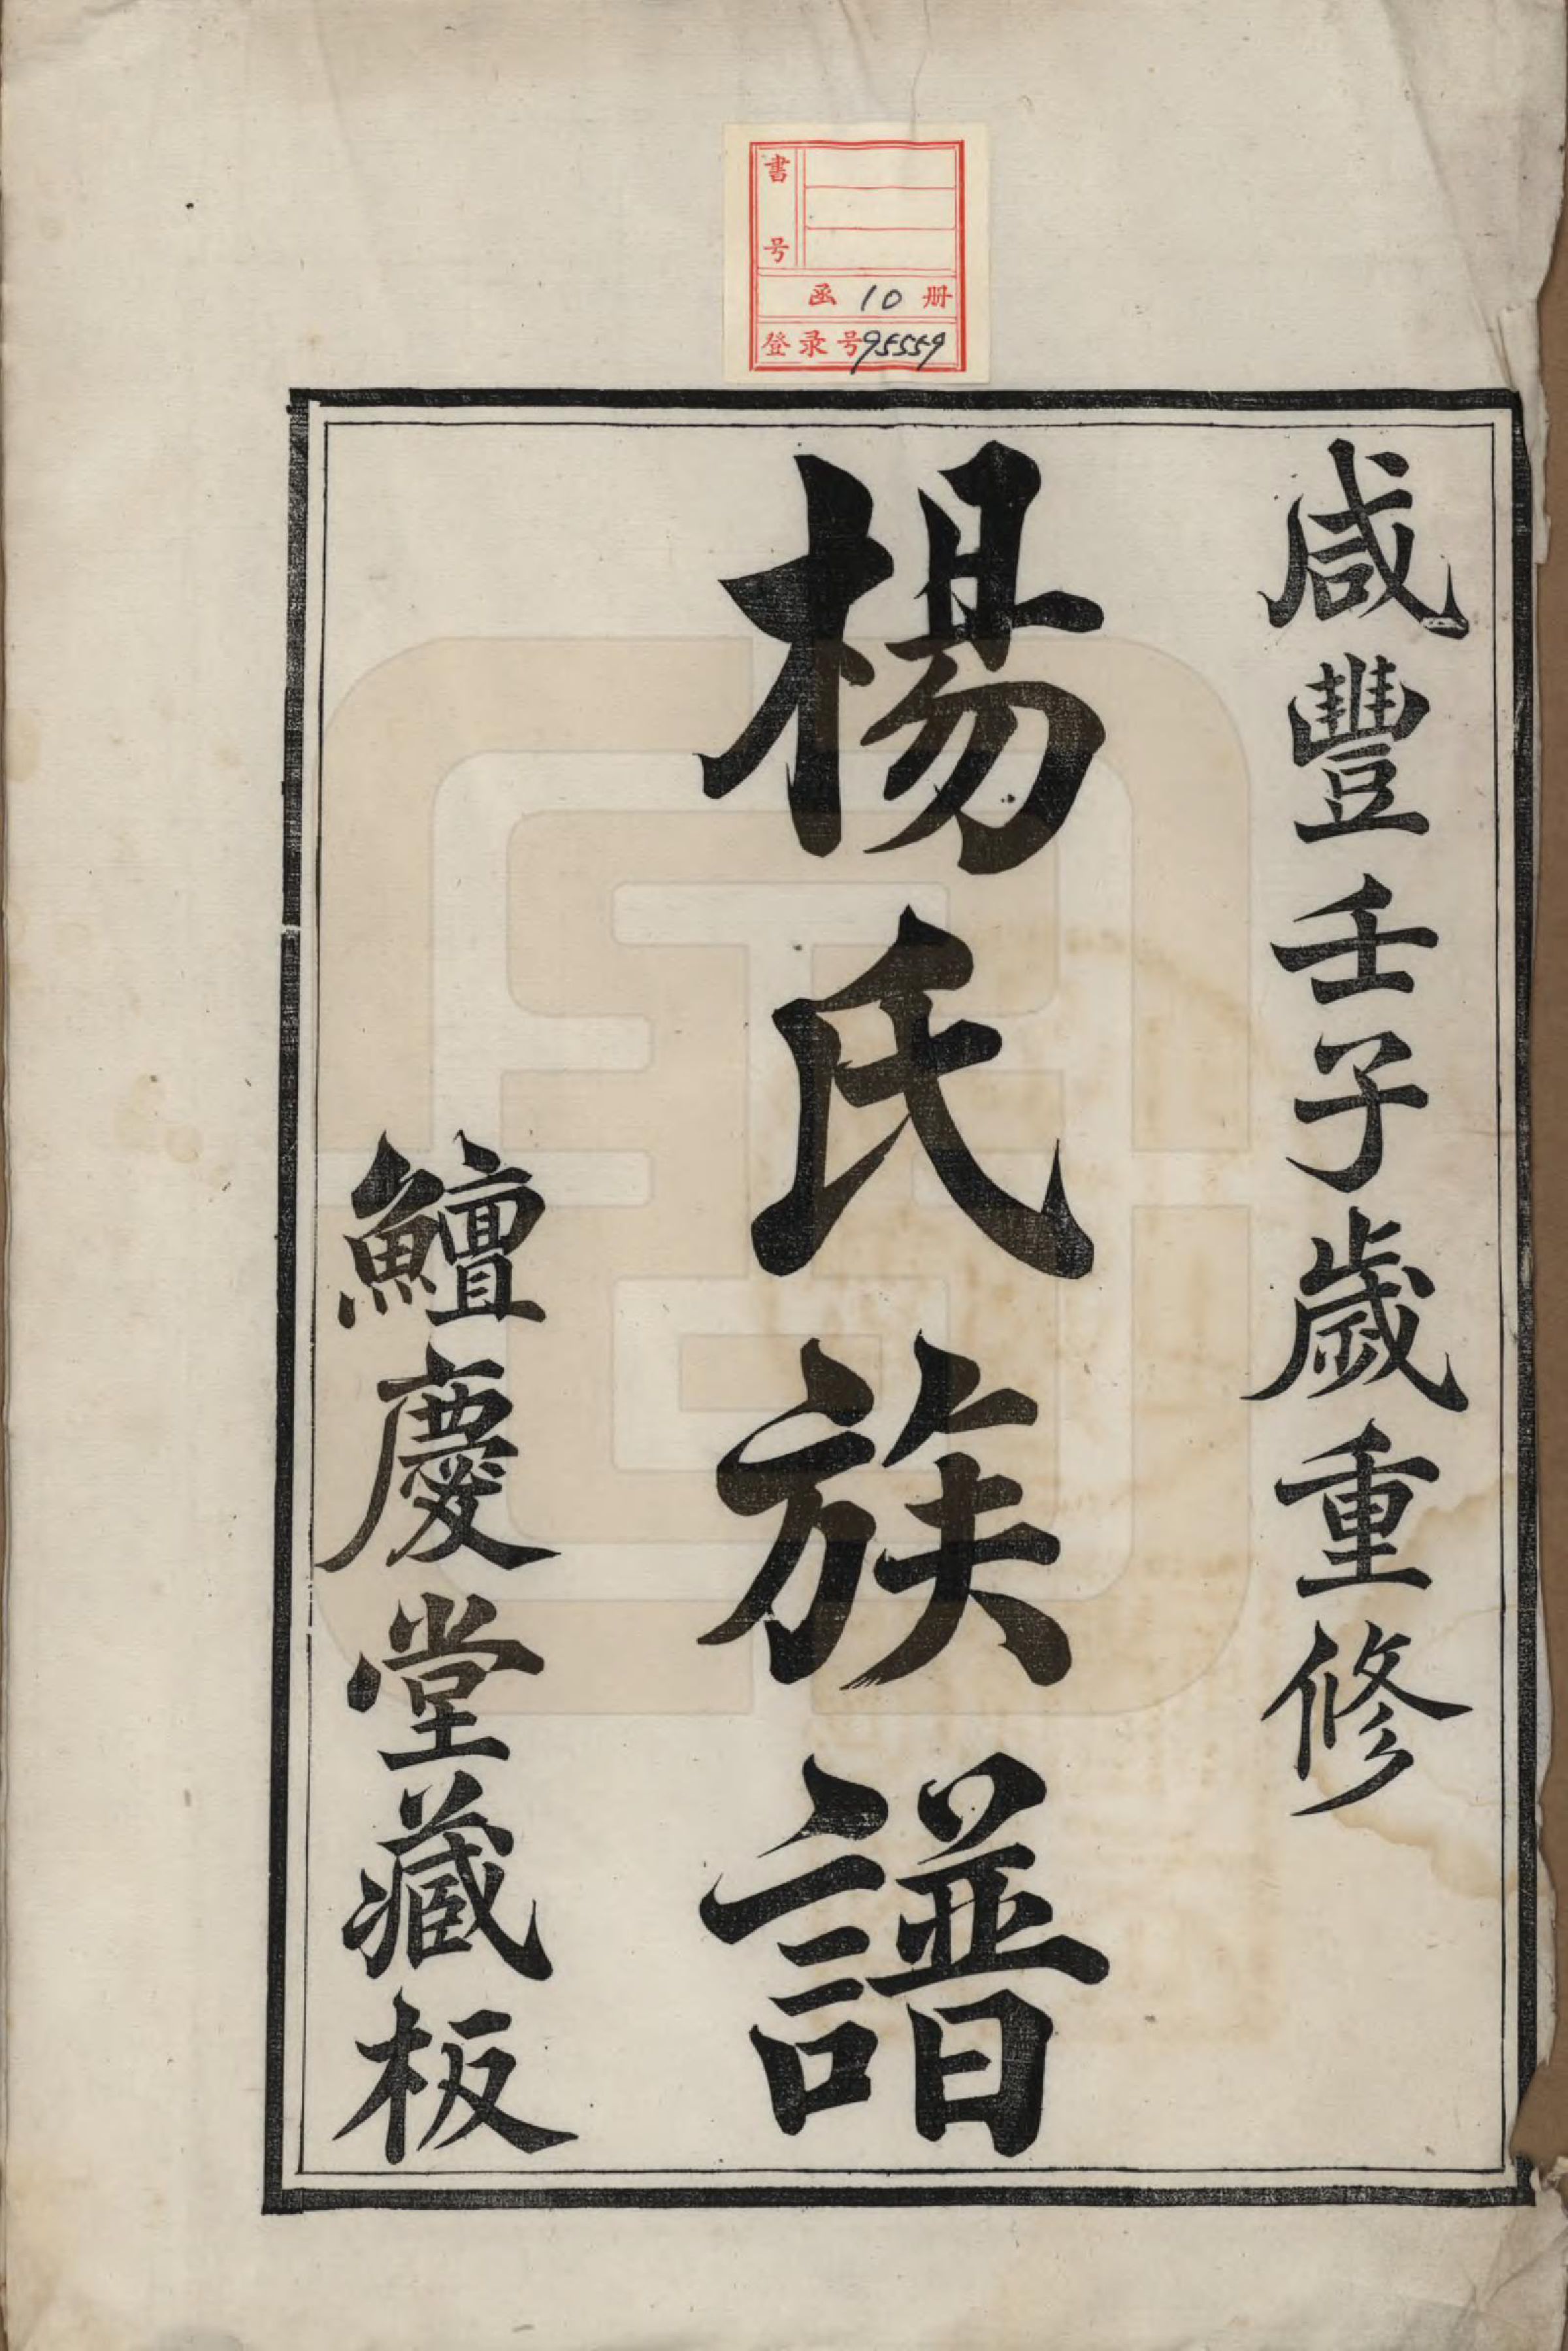 書号
函 10 册
登录号95559
咸豐壬子歲重修
楊氏族譜
鱣慶堂藏板